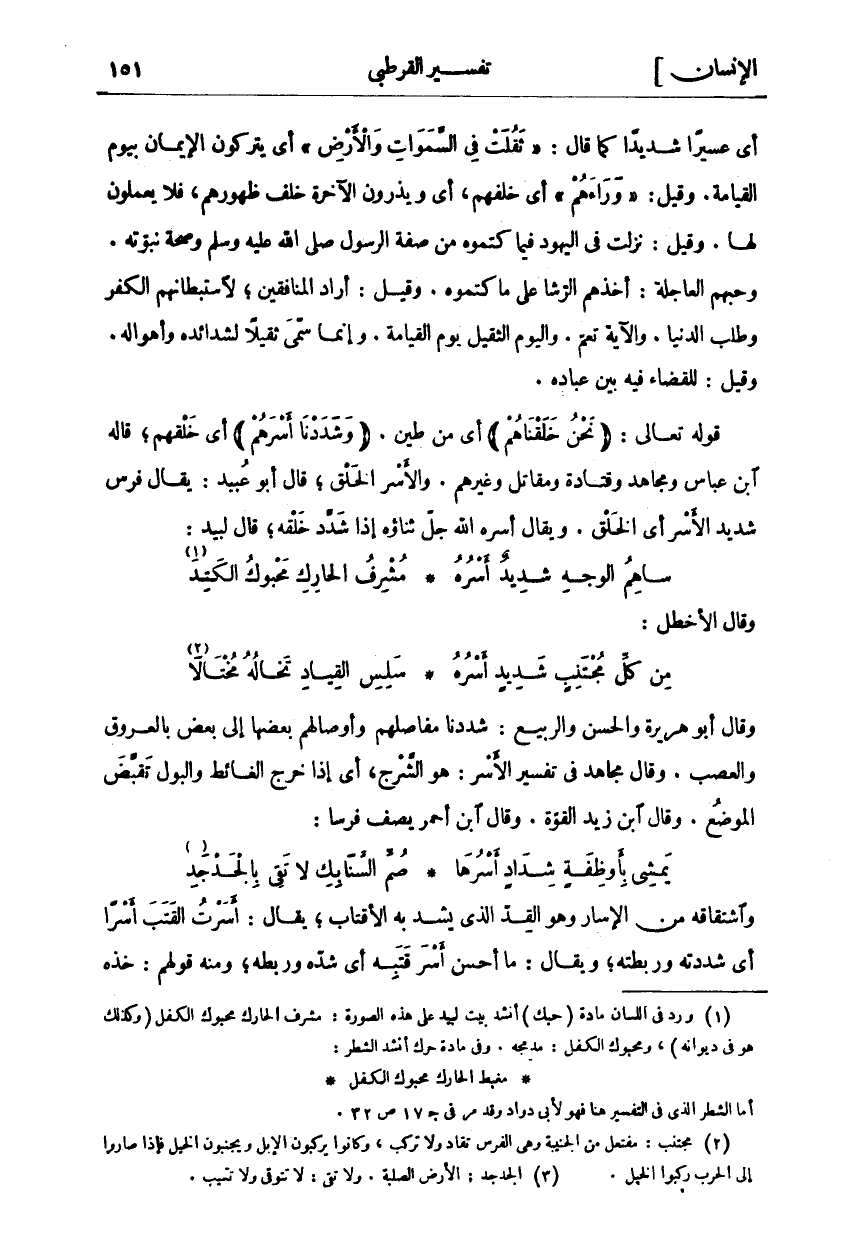 الإنسان ] تفسير القرطبى ١٥١
أى عسيرًا شديدًا كما قال : « ثَقُلَتْ فِى السَّمَوَاتِ وَالْأَرْضِ » أى يتركون الإيمان بيوم
القيامة . وقيل : « وَرَاءَهُمْ » أى خلفهم، أى ويذرون الآخرة خلف ظهورهم، فلا يعملون
لها . وقيل : نزلت فى اليهود فيما كتموه من صفة الرسول صلى الله عليه وسلم وصحة نبوّته .
وحبهم العاجلة : أخذهم الرُّشا على ما كتموه . وقيل : أراد المنافقين ؛ لآستبطانهم الكفر
وطلب الدنيا . والآية تعمّ . واليوم الثقيل يوم القيامة . وإنما سمّى ثقيلًا لشدائده وأهواله .
وقيل : للقضاء فيه بين عباده .
قوله تعالى : ( نَحْنُ خَلَقْنَاهُمْ ) أى من طين . ( وَشَدَدْنَا أَسْرَهُمْ ) أى خَلْقهم؛ قاله
آبن عباس ومجاهد وقتادة ومقاتل وغيرهم . والأَسْر الخَلْق ؛ قال أبو عُبيد : يقال فرس
شديد الأَسْر أى الخَلْق . ويقال أسره الله جلّ ثناؤه إذا شَدَّد خَلْقه؛ قال لبيد :
ساهِمُ الوجهِ شديدٌ أَسْرُهُ * مُشْرِفُ الحارِكِ مَحْبُوكُ الكَتِدْ (١)
وقال الأخطل :
مِن كلِّ مُجْتَنِبٍ شَدِيدٍ أَسْرُهُ * سَلِسِ القِيادِ تَخالُهُ مُخْتَالَا (٢)
وقال أبو هريرة والحسن والربيع : شددنا مفاصلهم وأوصالهم بعضها إلى بعض بالعروق
والعصب . وقال مجاهد فى تفسير الأَسْر : هو الشَّرْج، أى إذا خرج الغائط والبول تَقَبَّضَ
الموضُع . وقال آبن زيد القوّة . وقال آبن أحمر يصف فرسا :
يَمشِى بِأَوظِفَةٍ شِدادٍ أَسْرُهَا * صُمِّ السَّنَابِكِ لا تَقِى بِالْجَدْجَدِ ( )
وآشتقاقه من الإسار وهو القِدّ الذى يشد به الأقتاب ؛ يقال : أَسَرْتُ القَتَبَ أَسْرًا
أى شددته وربطته؛ ويقال : ما أحسن أَسْرَ قَتَبِه أى شدّه وربطه؛ ومنه قولهم : خذه
(١) ورد فى اللسان مادة ( حبك ) أنشد بيت لبيد على هذه الصورة : مشرف الحارك محبوك الكفل ( وكذلك
هو فى ديوانه ) ، ومحبوك الكفل : مدمجه . وفى مادة حرك أنشد الشطر :
* مغبط الحارك محبوك الكفل *
أما الشطر الذى فى التفسير هنا فهو لأبى دواد وقد مر فى جـ ١٧ ص ٣٢ .
(٢) مجتنب : مفتعل من الجنيبة وهى الفرس تقاد ولا تركب ، وكانوا يركبون الإبل ويجنبون الخيل فإذا صاروا
إلى الحرب ركبوا الخيل . (٣) الجدجد : الأرض الصلبة . ولا تقى : لا تتوقى ولا تتهيب .